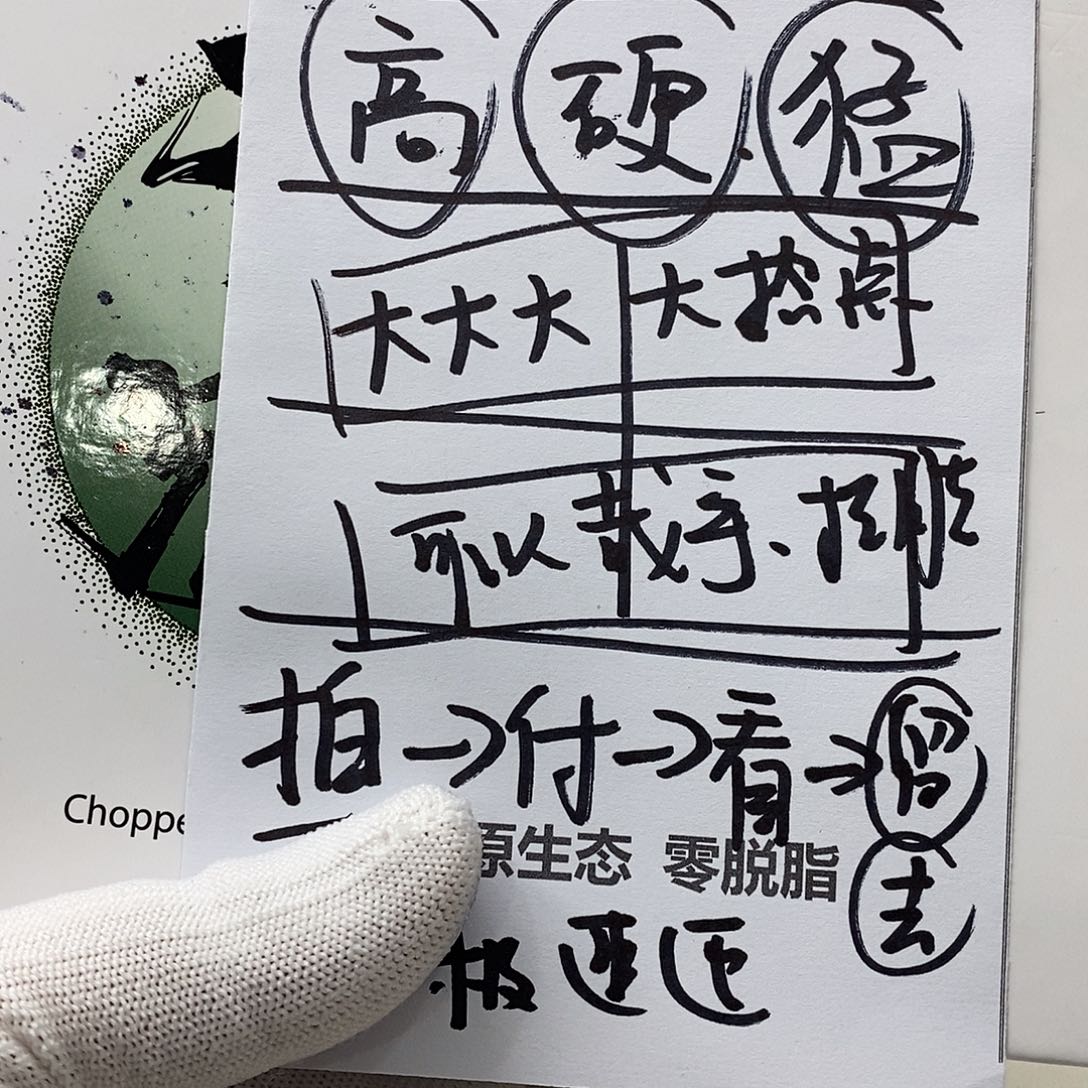 高 硬 猛
大大大 大热点
可以截手、排
拍→付→看→留
去
Choppe
原生态 零脱脂
极速